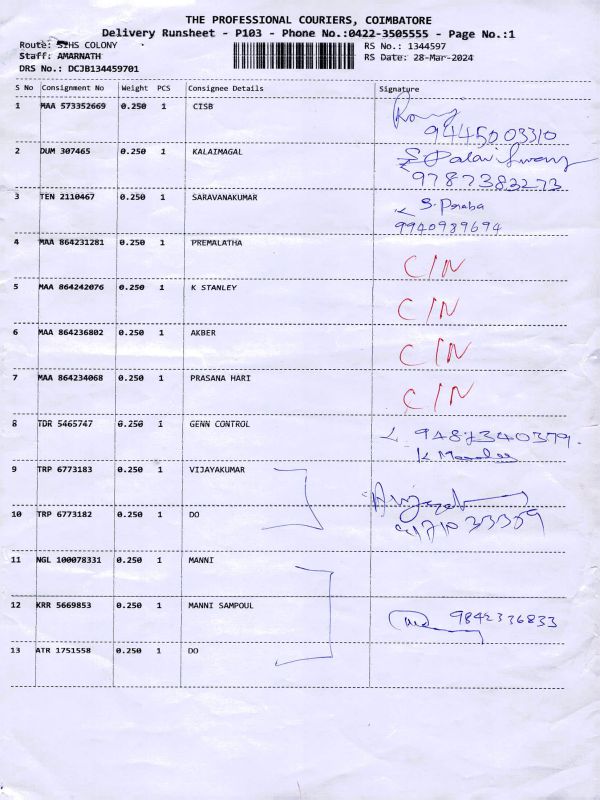 THE PROFESSIONAL COURIERS, COIMBATORE
Delivery Runsheet - P103 - Phone No.:0422-3505555 - Page No.:1
Route: SIHS COLONY RS No.: 1344597
Staff: AMARNATH RS Date: 28-Mar-2024
DRS No.: DCJB134459701
S No Consignment No Weight PCS Consignee Details Signature
1 MAA 573352669 0.250 1 CISB
9445003310
2 DUM 307465 0.250 1 KALAIMAGAL
9787382273
3 TEN 2110467 0.250 1 SARAVANAKUMAR S. Praba
9940939694
4 MAA 864231281 0.250 1 PREMALATHA
C/N
5 MAA 864242076 0.250 1 K STANLEY
C/N
6 MAA 864236802 0.250 1 AKBER
C/N
7 MAA 864234068 0.250 1 PRASANA HARI
C/N
8 TDR 5465747 0.250 1 GENN CONTROL
9487340379.
9 TRP 6773183 0.250 1 VIJAYAKUMAR
10 TRP 6773182 0.250 1 DO
11 NGL 100078331 0.250 1 MANNI
12 KRR 5669853 0.250 1 MANNI SAMPOUL 9842336833
13 ATR 1751558 0.250 1 DO